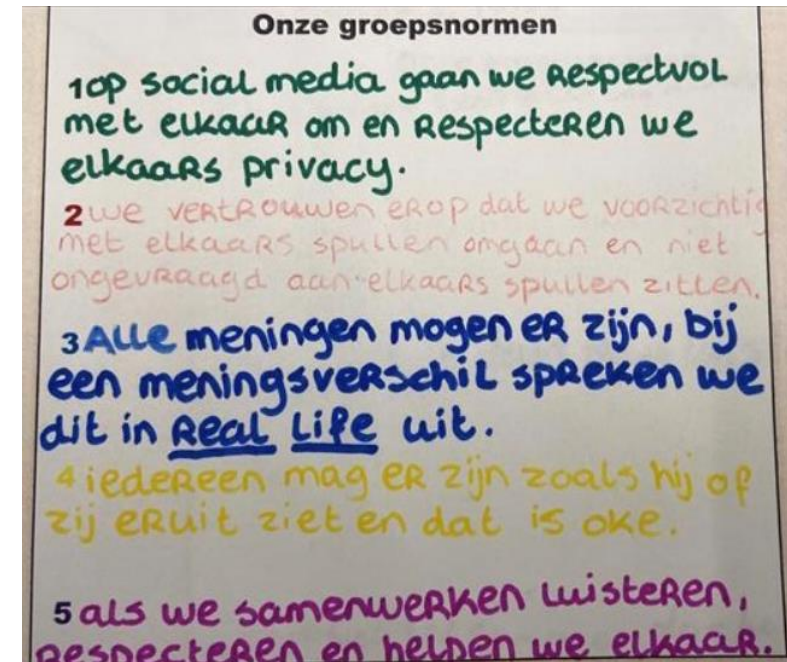 Onze groepsnormen
1 op social media gaan we respectvol
met elkaar om en respecteren we
elkaars privacy.
2 we vertrouwen erop dat we voorzichtig
met elkaars spullen omgaan en niet
ongevraagd aan elkaars spullen zitten.
3 Alle meningen mogen er zijn, bij
een meningsverschil spreken we
dit in Real Life uit.
4 iedereen mag er zijn zoals hij of
zij eruit ziet en dat is oke.
5 als we samenwerken luisteren,
respecteren en helpen we elkaar.